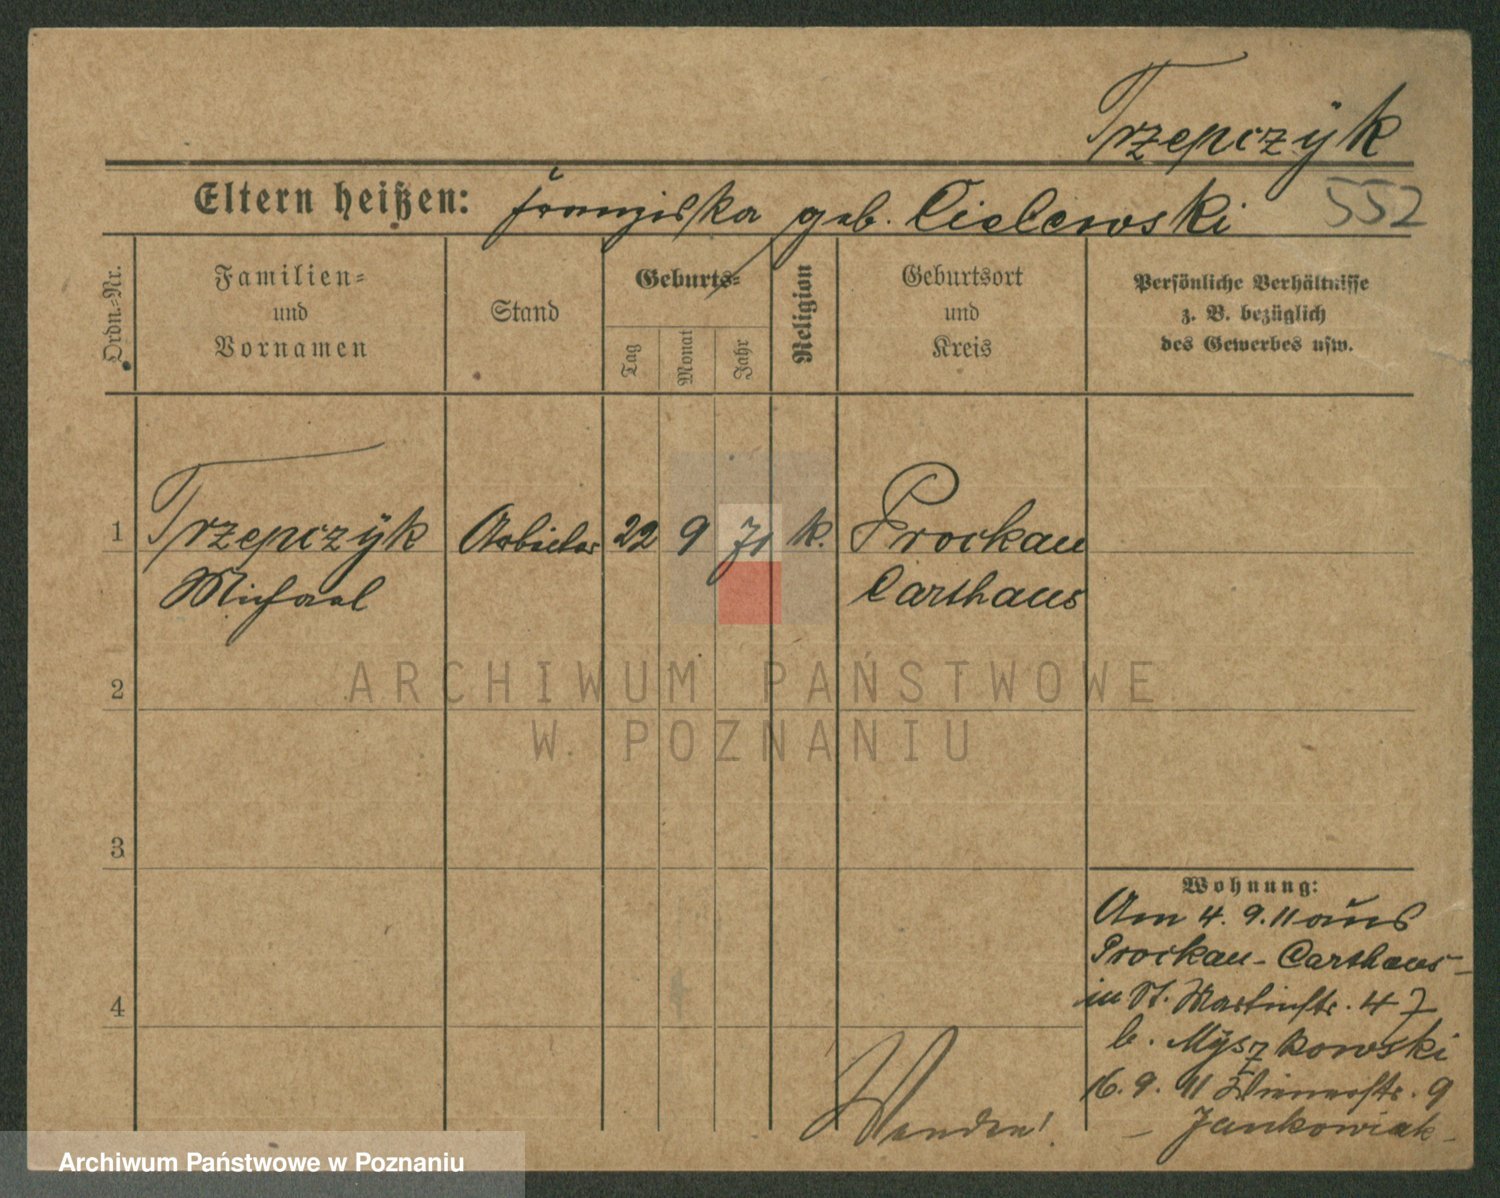 Trzepczÿk
Eltern heißen: Franziska geb. Cielewski 552
Ordn.-Nr.
Familien-
und
Vornamen
Stand
Geburts-
Tag
Monat
Jahr
Religion
Geburtsort
und
Kreis
Persönliche Verhältnisse
z. B. bezüglich
des Gewerbes usw.
1 Trzepczÿk Arbeiter 22 9 71 k. Prockau
Michael Carthaus
ARCHIWUM PAŃSTWOWE
W POZNANIU
2
3
4
Wohnung:
Am 4. 9. 11 aus
Prockau - Carthaus -
in St. Martinstr. 47
b. Mÿszkowski
16. 9. 11 Wienerstr. 9
- Jankowiak -
Wenden!
Archiwum Państwowe w Poznaniu